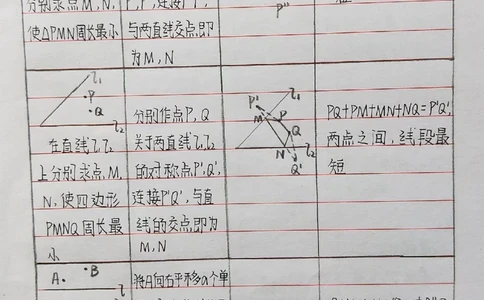 分别求点M,N,
使△PMN周长最小
P',P'',连接P'P'',
与两直线交点,即
为M,N
P''
短
l1
P
Q
l2
在直线l1,l2
上分别求点M,
N,使四边形
PMNQ周长最
小
分别作点P,Q
关于两直线l1,l2
的对称点P',Q',
连接P'Q',与直
线的交点即为
M,N
l1
P'
P
M
Q
N
l2
Q'
PQ+PM+MN+NQ=P'Q',
两点之间,线段最
短
A
B
l
将A向右平移a个单